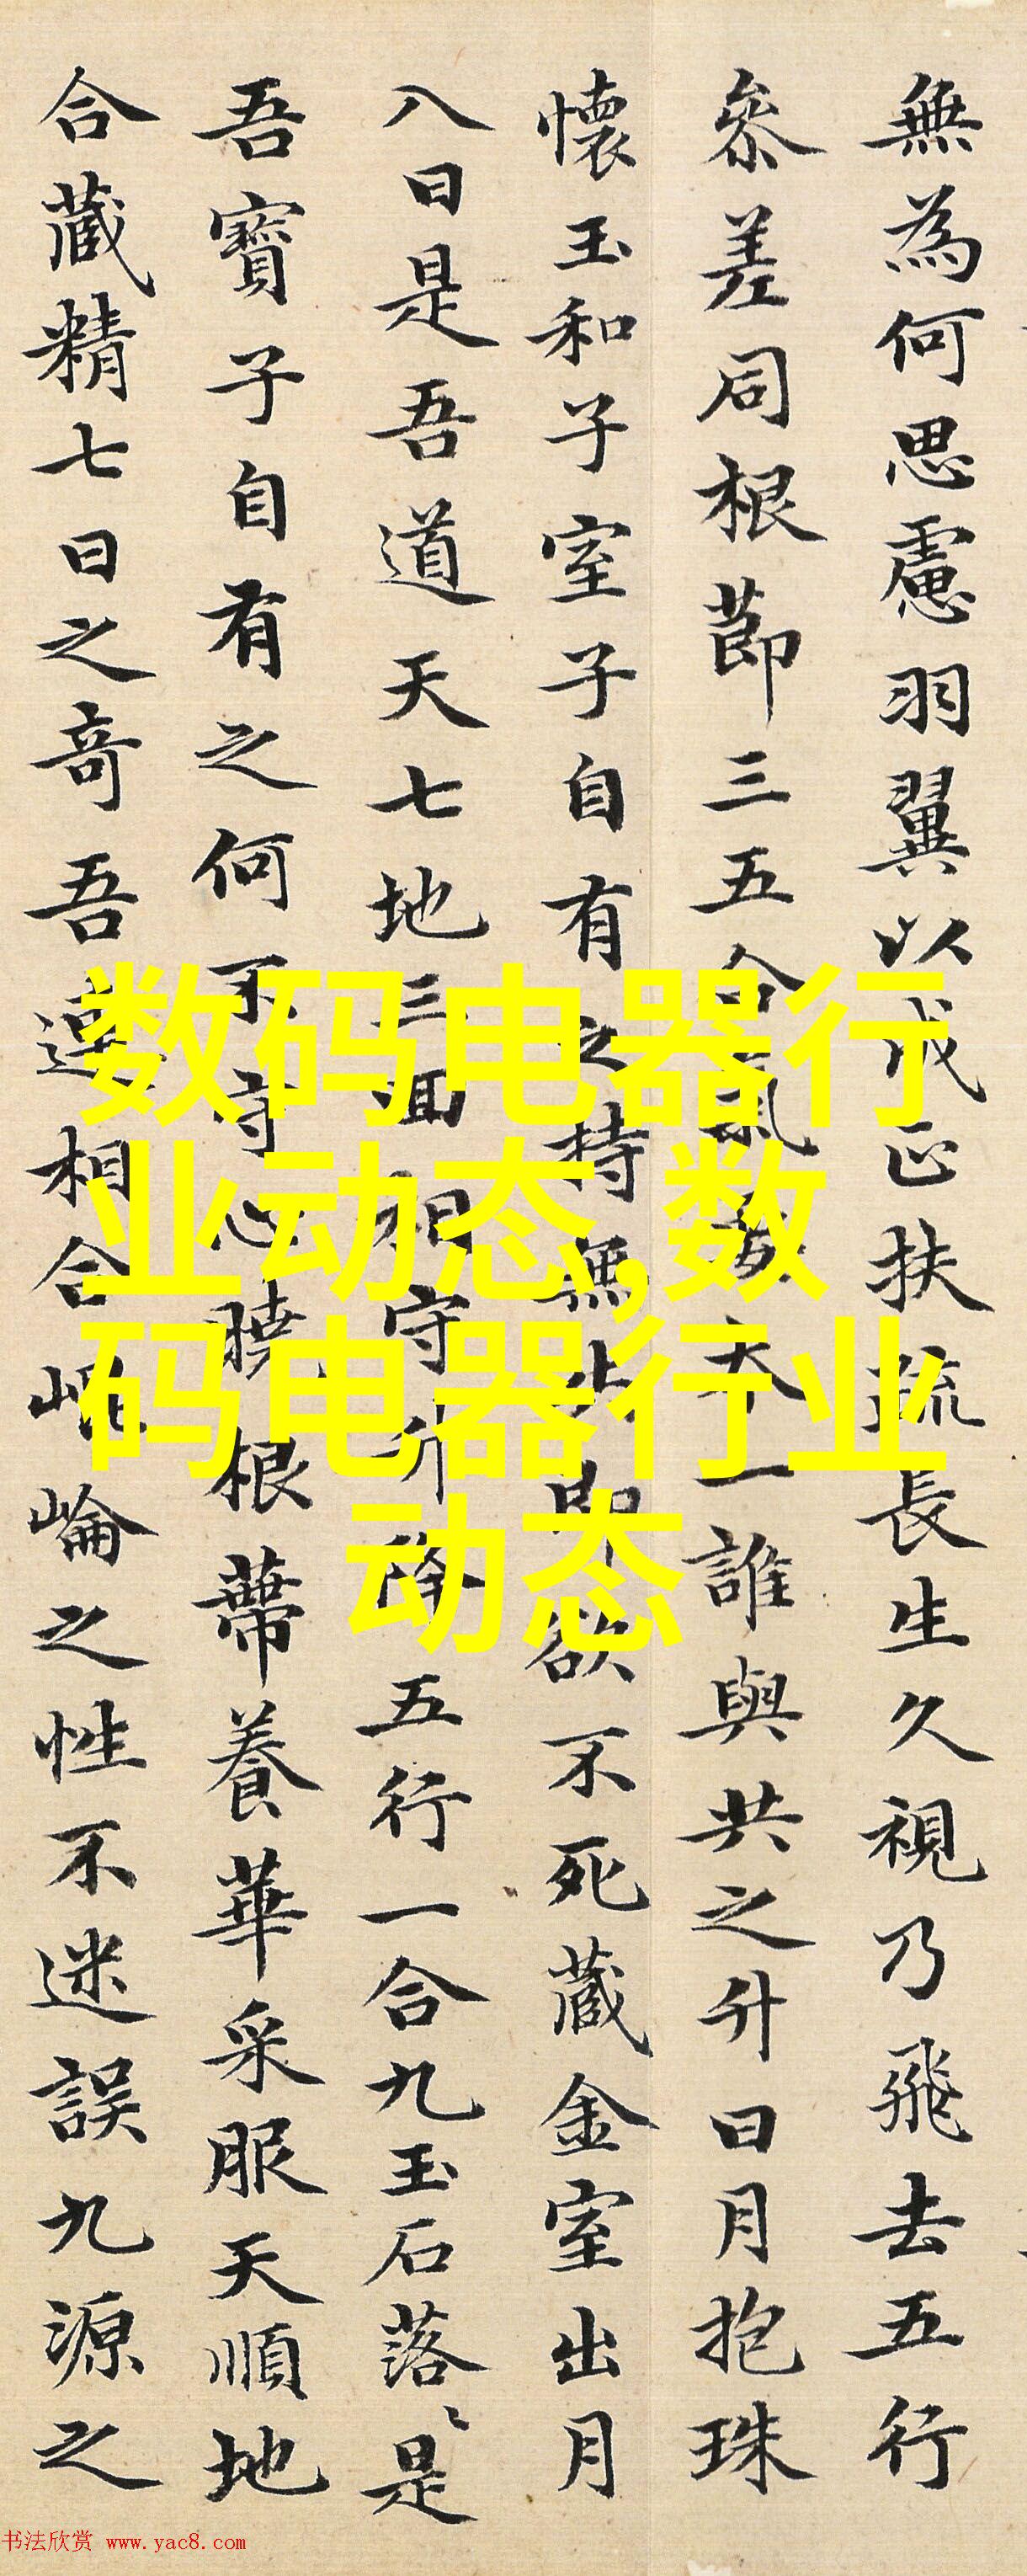 無為何思慮羽翼以成正扶疏長生久視乃飛去五行
參差同根節三五合氣要本一誰與共之升日月抱珠
懷玉和子室子自有之持無失即欲不死藏金室出月
入日是吾道天七地三回相守升降五行一合九玉石落〻是
吾寶子自有之何不守心曉根蔕養華采服天順地
合藏精七日之奇吾連相合崐崘之性不迷誤九源之
数码电器行
业动态,数
码电器行业
动态
书法欣赏 www.yac8.com